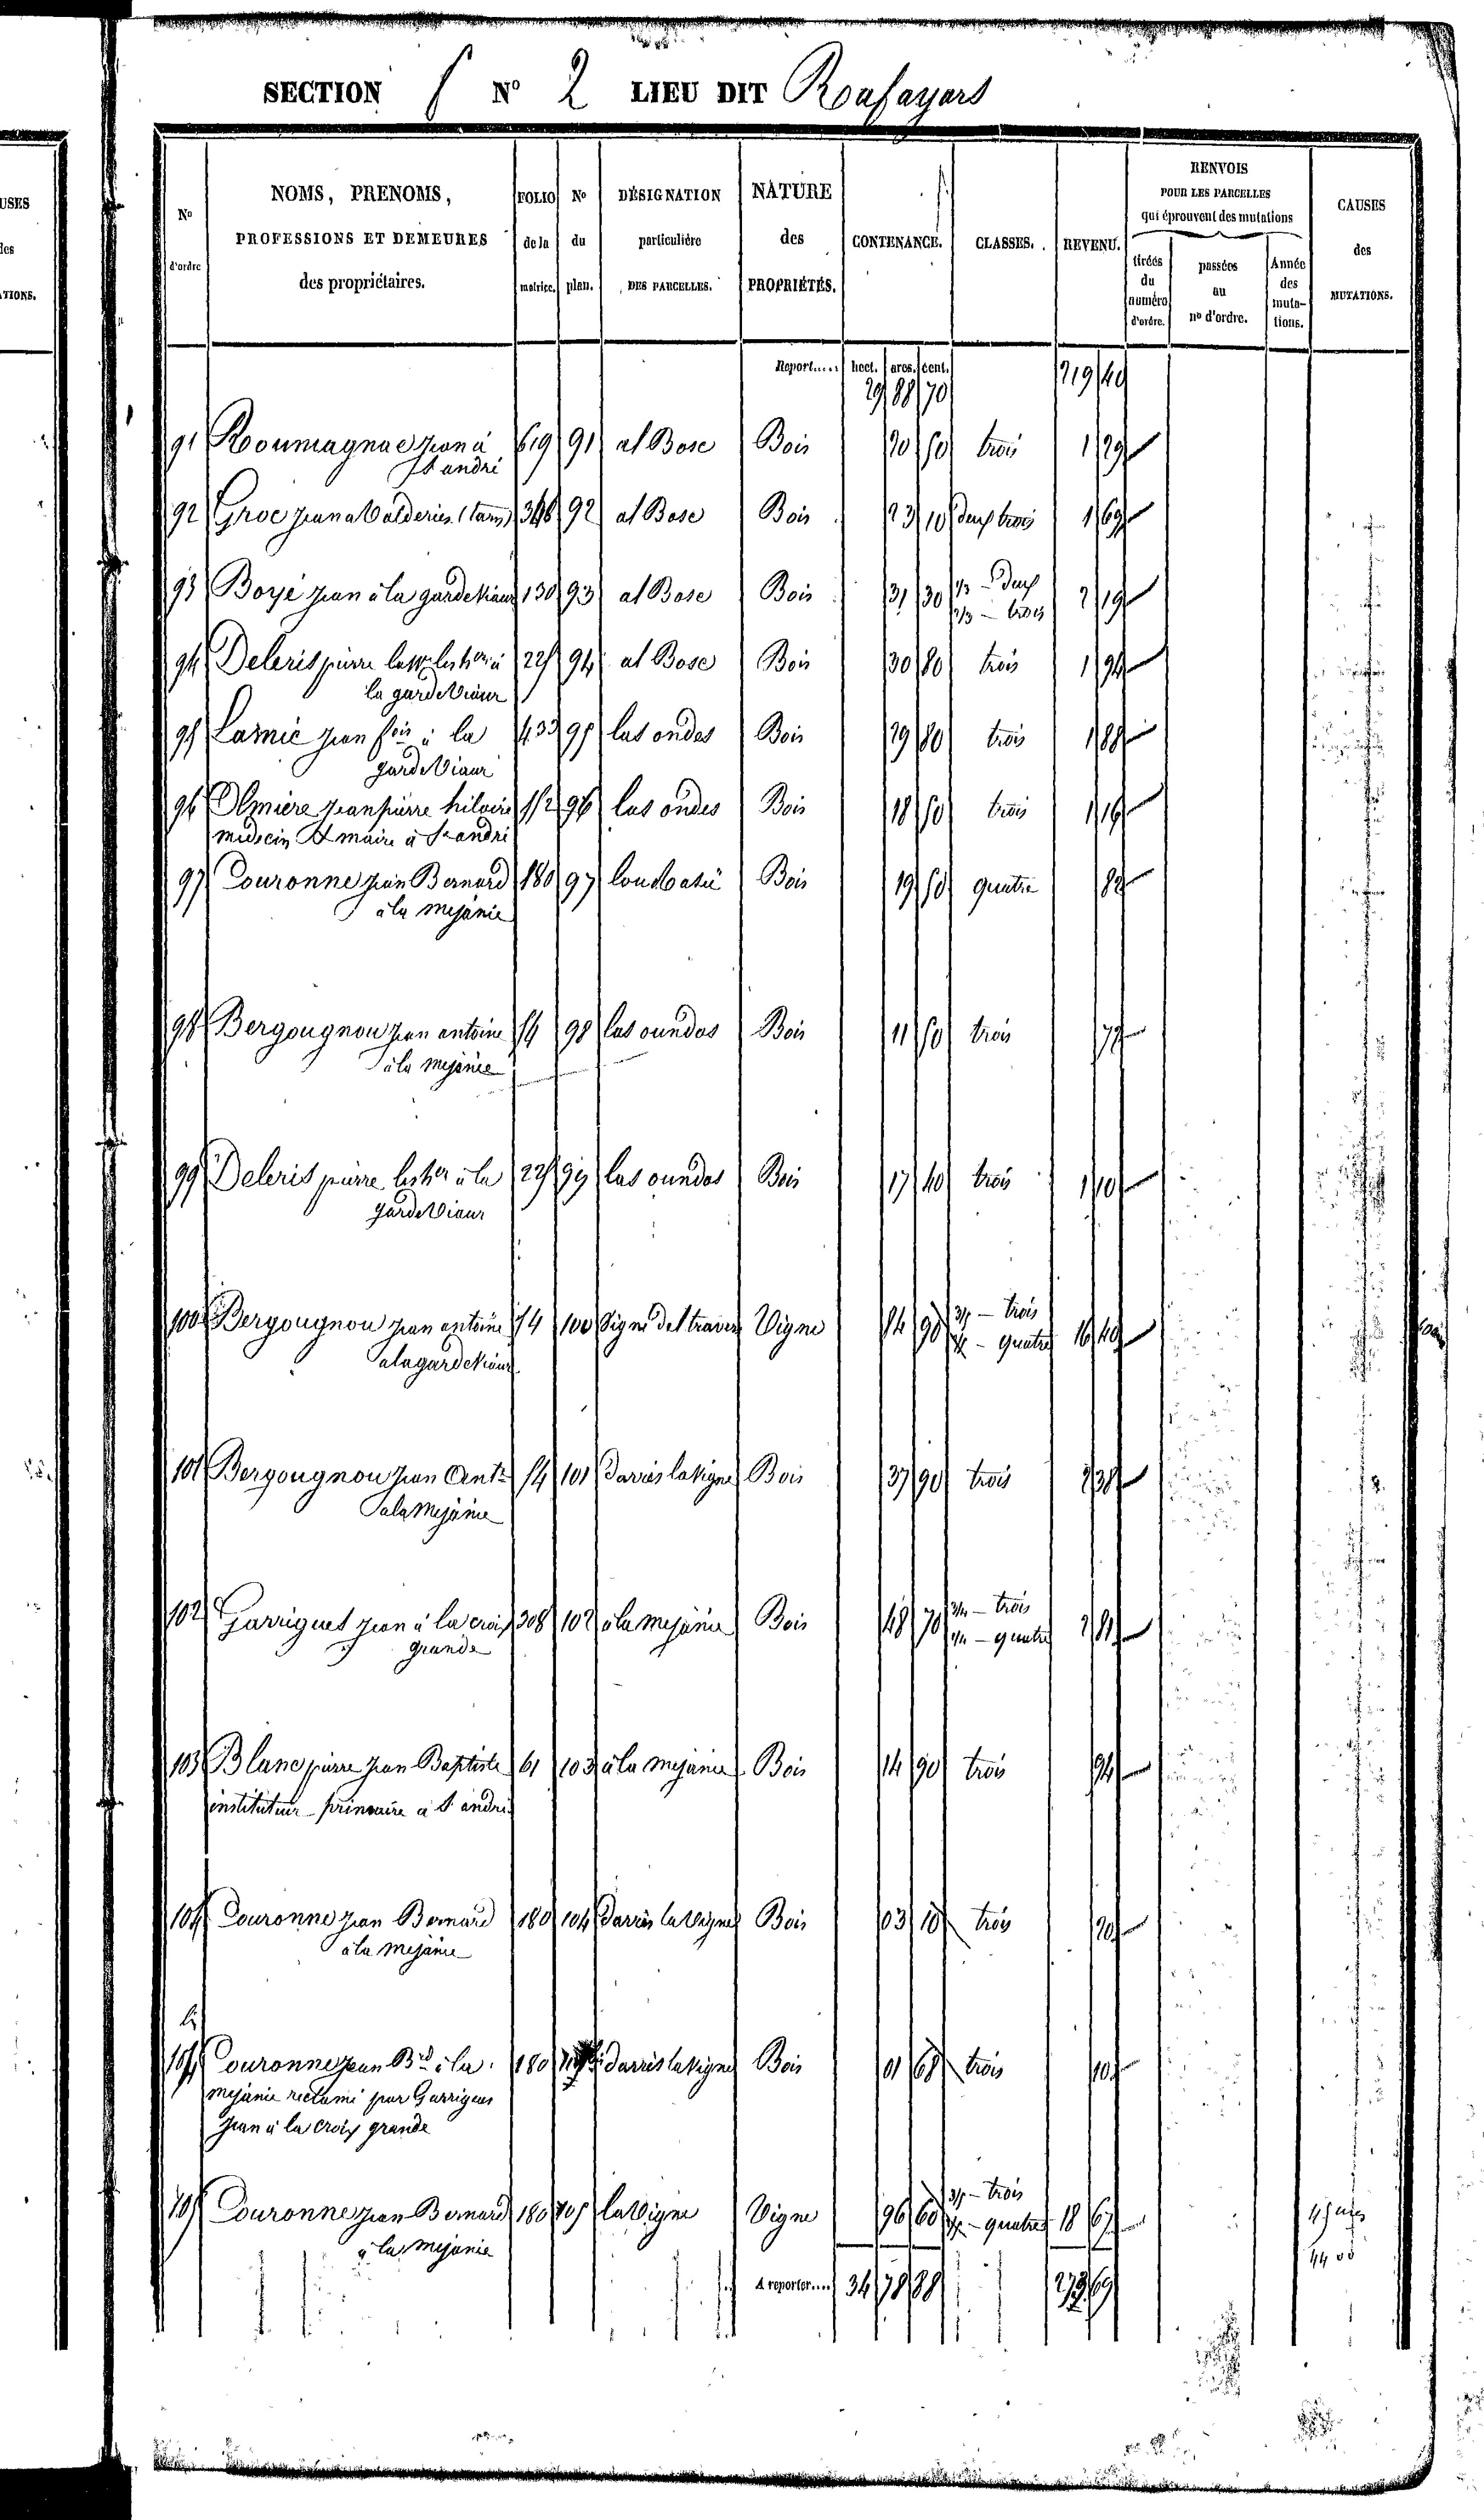 SECTION N° 2 LIEU DIT Roufayars
N° d'ordre
NOMS, PRENOMS, PROFESSIONS ET DEMEURES des propriétaires.
FOLIO de la matrice.
N° du plan.
DÉSIGNATION particulière DES PARCELLES.
NATURE des PROPRIÉTÉS.
CONTENANCE.
CLASSES.
REVENU.
RENVOIS POUR LES PARCELLES qui éprouvent des mutations
tirées du numéro d'ordre.
passées au n° d'ordre.
Année des mutations.
CAUSES des MUTATIONS.
Report..... hect. ares. cent.
29 88 70 219 49
91 Roumagnac jean à 619 91 al Bosc Bois 20 50 trois 1 29
St andré
92 Groc jean a Valderies (tarn) 92 al Bosc Bois 23 10 deux trois 1 69
93 Boyé jean à la gardeviaur 130 93 al Bosc Bois 31 30 1/3 - deux 2 19
2/3 - trois
94 Deleris pierre à 225 94 al Bosc Bois 30 80 trois 1 94
la gardeViaur
95 jean à la 433 95 las ondes Bois 29 80 trois 1 88
gardeViaur
96 Olmière jean pierre hilaire 512 96 las ondes Bois 18 50 trois 1 16
médecin & maire à St andré
97 Couronne jean Bernard 180 97 Bois 19 50 quatre 82
à la mejanie
98 Bergougnou jean antoine 54 98 las oundos Bois 11 50 trois 72
à la mejanie
99 Deleris pierre à la 225 99 las oundos Bois 17 40 trois 1 10
gardeViaur
100 Bergougnou jean antoine 54 100 Vigne del traves Vigne 90 - trois 16 49
- quatre
a la gardeviaur
101 Bergougnou jean Ant. 54 101 darriès la vigne Bois 37 90 trois 2 38
a la mejanie
102 Garrigues jean à la croix 308 102 à la mejanie Bois 48 70 3/4 - trois 2 81
1/4 - quatre
grande
103 Blanc pierre jean Baptiste 61 103 à la mejanie Bois 14 90 trois 94
instituteur primaire à St andré
104 Couronne jean Bernard 180 104 darriès la vigne Bois 03 10 trois 20
à la mejanie
Couronne jean Bd à la 180 darriès la vigne Bois 01 68 trois 10
mejanie réclamé par Garrigues
jean à la croix grande
105 Couronne jean Bernard 180 105 la Vigne Vigne 96 60 - trois 18 67
- quatre
à la mejanie
A reporter.... 34 78 88